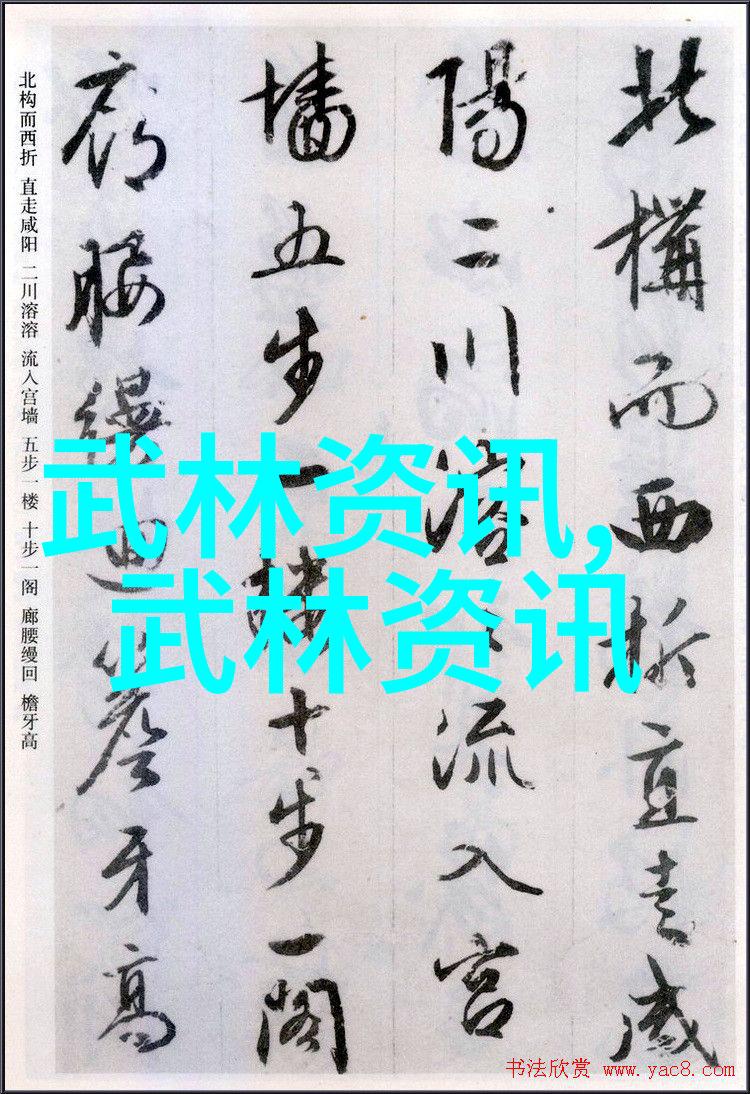 北構而西折直走咸
陽二川溶々流入宮
墻五步一樓十步一閣
廊腰縵迴簷牙高
北构而西折 直走咸阳 二川溶溶 流入宫墙 五步一楼 十步一阁 廊腰缦回 檐牙高
武林资讯,
武林资讯
书法欣赏 www.yac8.com